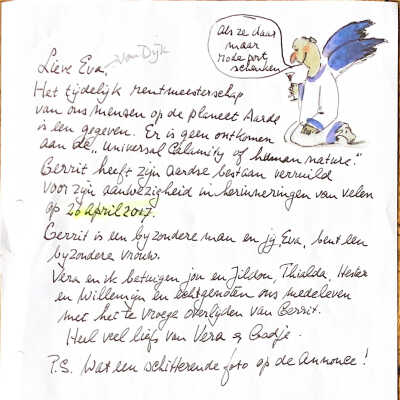 Als ze daar
maar
rode port
schenken
van Dijk
Lieve Eva,
Het tijdelijk rentmeesterschap
van ons mensen op de planeet Aarde
is een gegeven. Er is geen ontkomen
aan de „Universal Calamity of human nature."
Gerrit heeft zijn aardse bestaan verruild
voor zijn aanwezigheid in herinneringen van velen
op 26 april 2017.
Gerrit is een byzondere man en jy Eva, bent een
byzondere vrouw.
Vera en ik betuigen jou en Jildou, Thialda, Hester
en Willemijn en echtgenoten ons medeleven
met het te vroege overlijden van Gerrit.
Heel veel liefs van Vera & Gadje.
P.S. Wat een schitterende foto op de annonce!